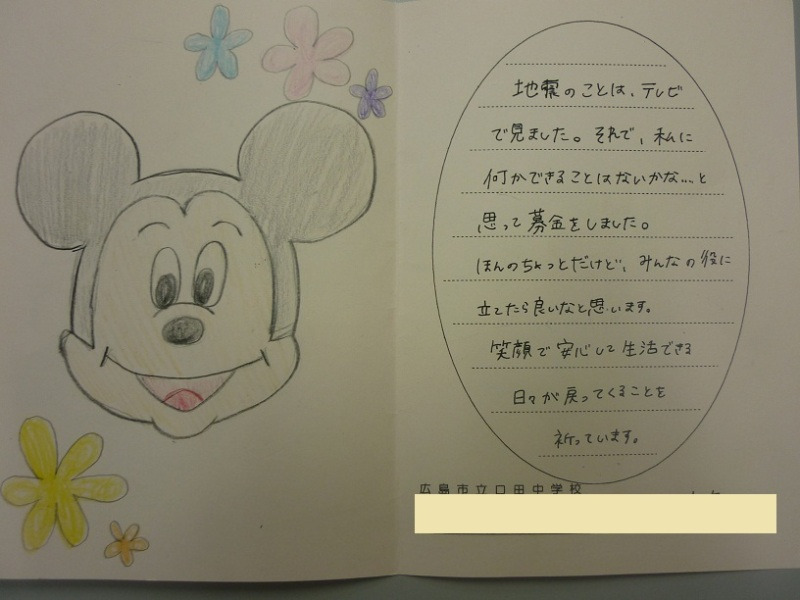 地震のことは、テレビ
で見ました。それで、私に
何かできることはないかな…と
思って募金をしました。
ほんのちょっとだけど、みんなの役に
立てたら良いなと思います。
笑顔で安心して生活できる
日々が戻ってくることを
祈っています。
広島市立口田中学校